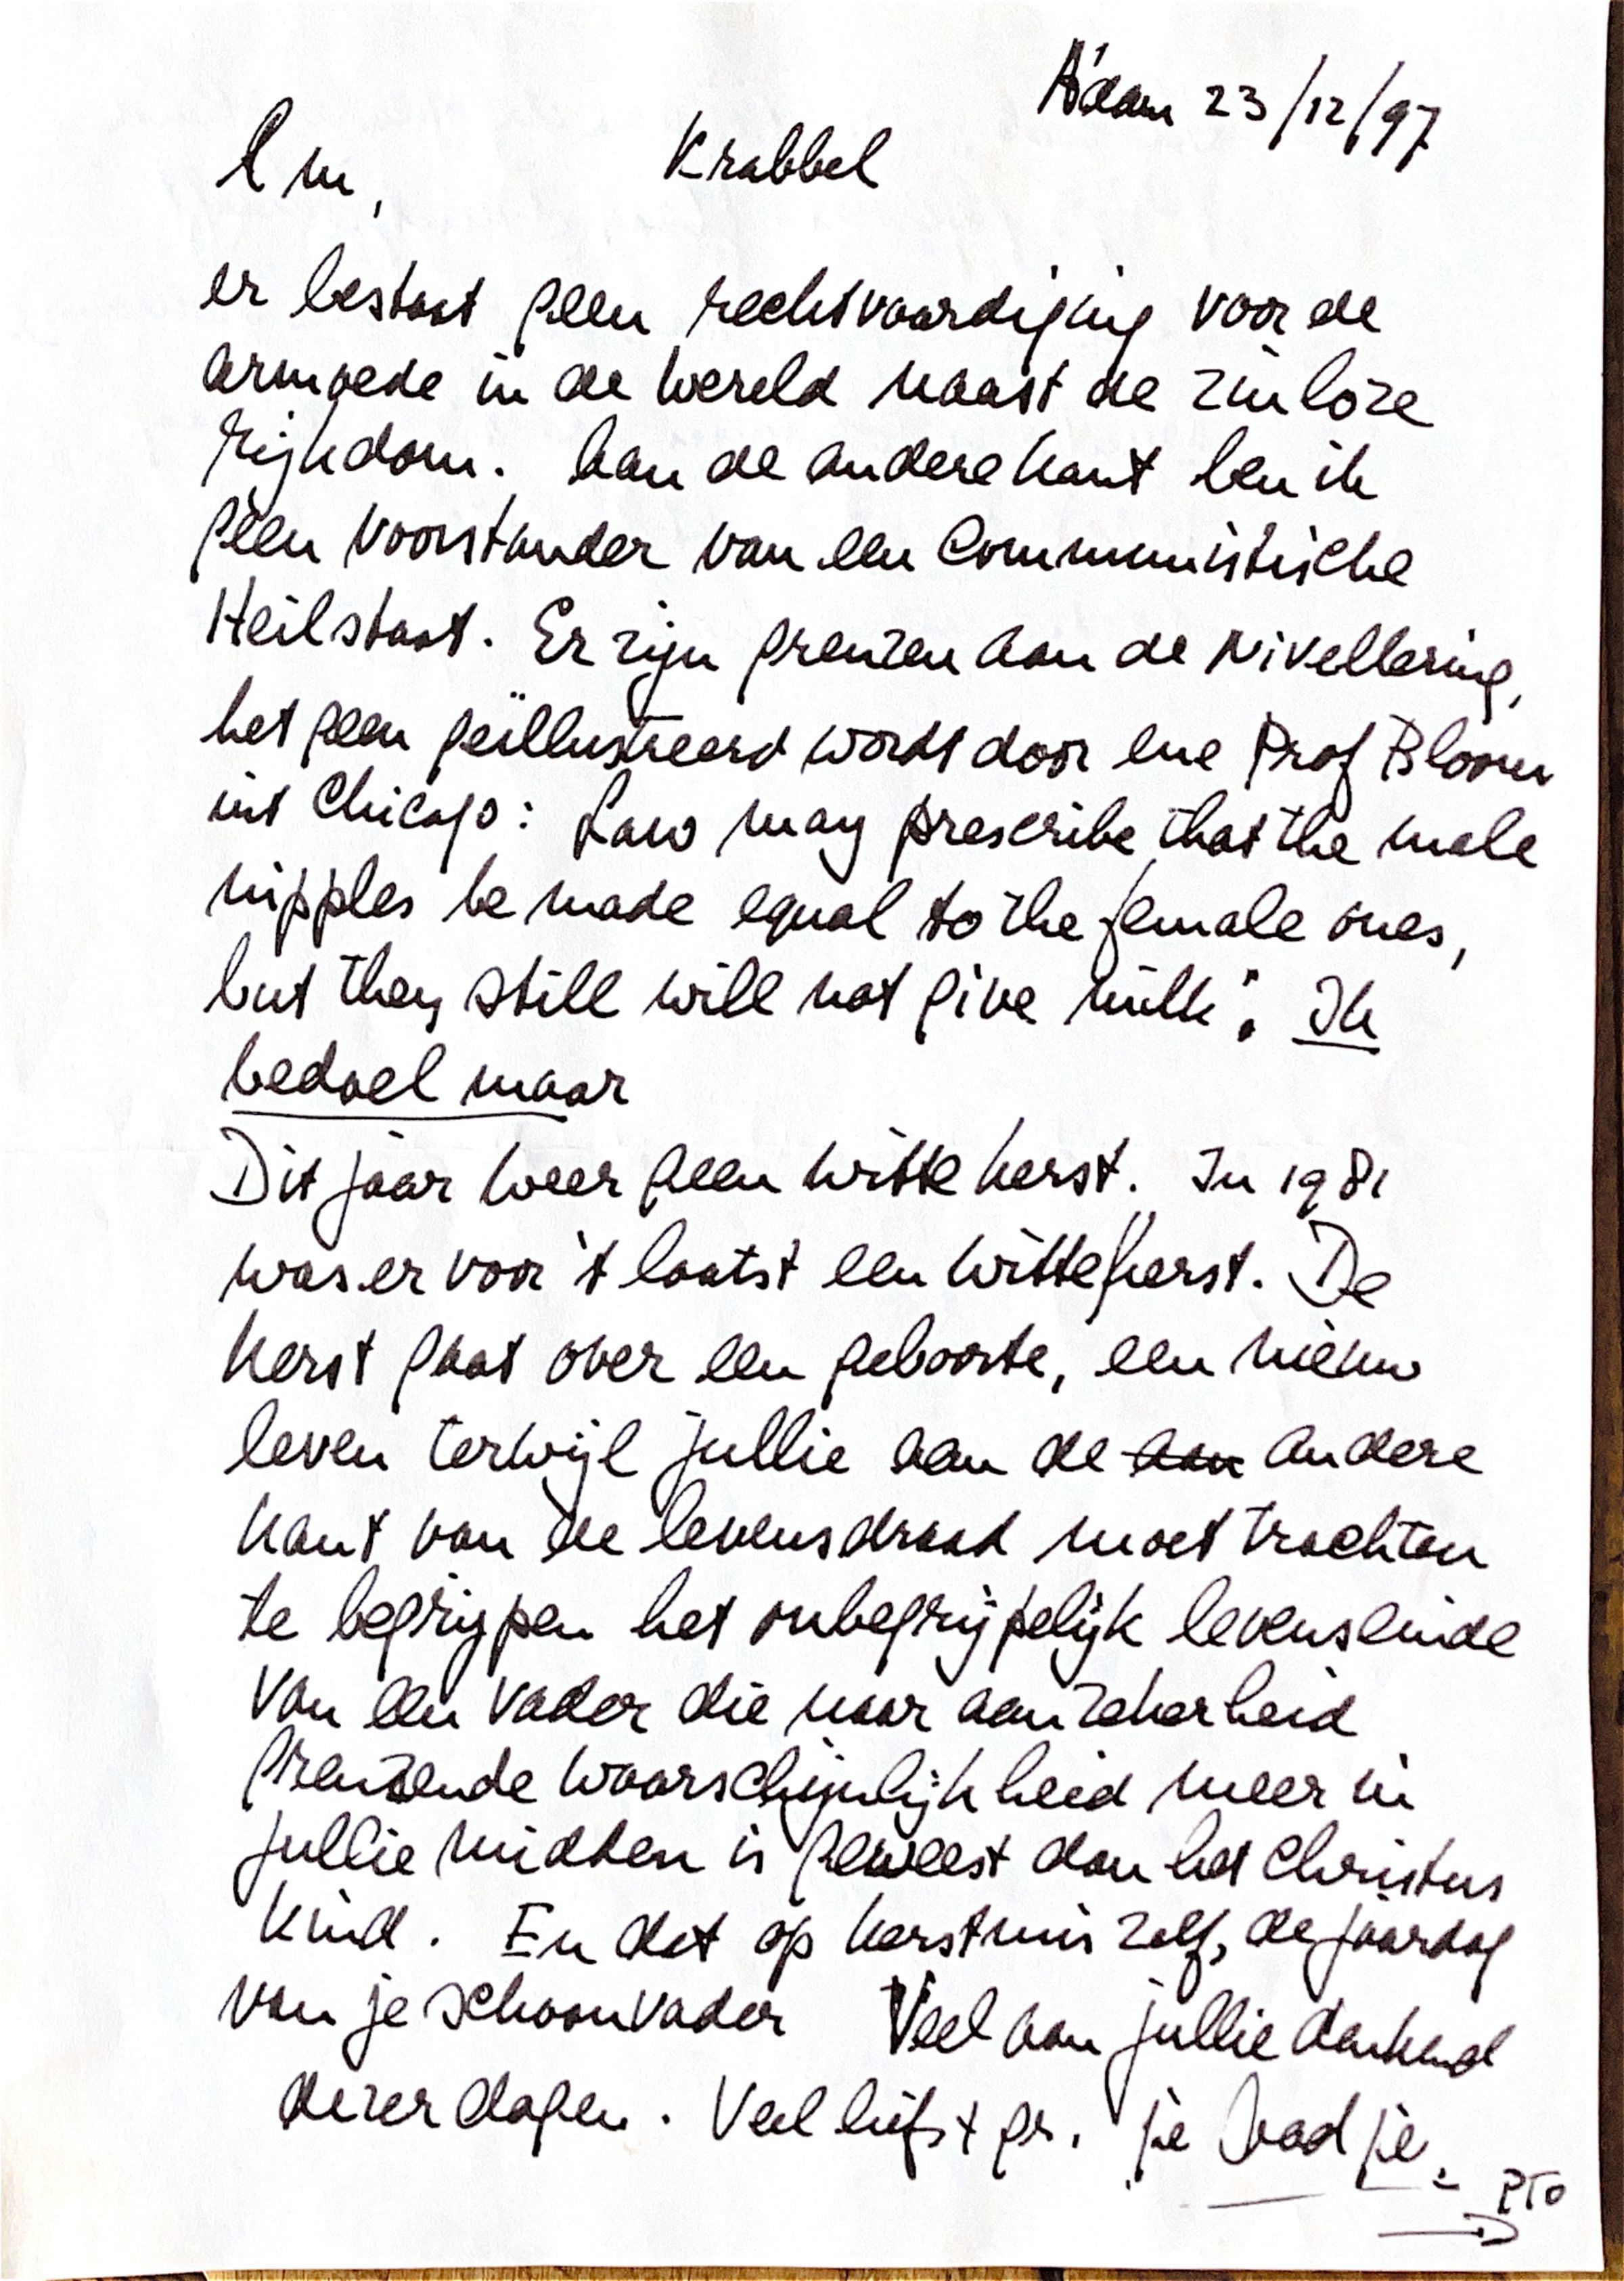 A'dam 23/12/97
Lm, Krabbel
er bestaat geen rechtvaardiging voor de
armoede in de wereld naast de zinloze
rijkdom. Aan de andere kant ben ik
geen voorstander van een Communistische
Heilstaat. Er zijn grenzen aan de Nivellering,
het geen geïllustreerd wordt door ene Prof Bloom
uit Chicago: Law may prescribe that the male
nipples be made equal to the female ones,
but they still will not give milk". Ik
bedoel maar
Dit jaar weer geen witte kerst. In 1981
was er voor 't laatst een witte kerst. De
kerst gaat over een geboorte, een nieuw
leven terwijl jullie aan de aan andere
kant van de levensdraad moet trachten
te begrijpen het onbegrijpelijk levenseinde
van een vader die naar aan zekerheid
grenzende waarschijnlijkheid meer in
jullie midden is geweest dan het Christus
kind. En dat op kerstmis zelf, de jaardag
van je schoonvader Veel aan jullie denkend
dezer dagen. Veel liefst gr. je
PTO